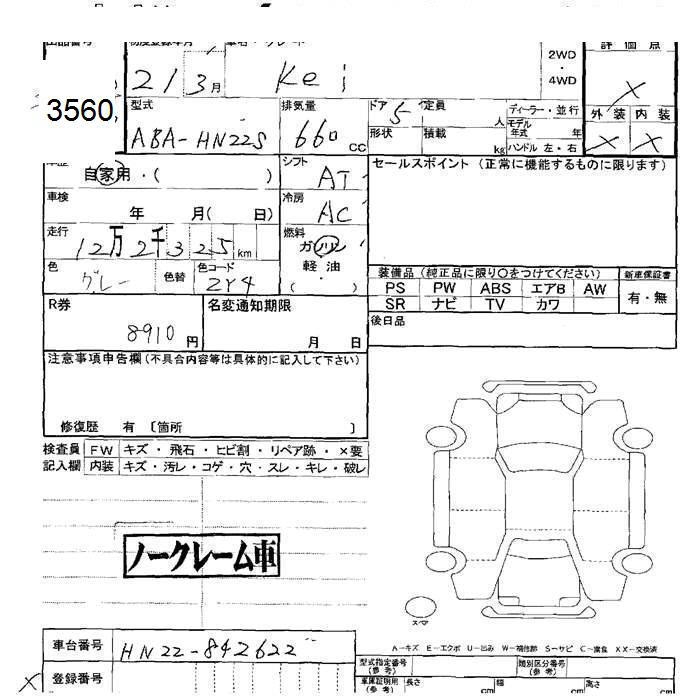 出品番号 初度登録年月 車名・グレード 2WD・4WD 評価点
21 3月 Kei X
3560
型式 排気量 ドア 定員 人 ディーラー・並行 外装 内装
ABA-HN22S 660 CC 5 形状 積載 kg モデル年式 年 ハンドル 左・右 X X
車歴 自家用・( ) シフト AT セールスポイント(正常に機能するものに限ります)
車検 年 月( 日) 冷房 AC
走行 12万2千325km 燃料 ガソリン・軽油・( )
色 グレー 色替 色コード ZY4
装備品(純正品に限り○をつけてください) 新車保証書
PS PW ABS エアB AW 有・無
SR ナビ TV カワ
R券 8910円 名変通知期限 月 日 後日品
注意事項申告欄(不具合内容等は具体的に記入して下さい)
修復歴 有 〔箇所 〕
検査員 FW キズ・飛石・ヒビ割・リペア跡・×要
記入欄 内装 キズ・汚レ・コゲ・穴・スレ・キレ・破レ
ノークレーム車
スペア
A-キズ E-エクボ U-凹み W-補修跡 S-サビ C-腐食 XX-交換済
車台番号 HN22-842622
型式指定番号(参考) 類別区分番号(参考)
X 登録番号 車庫証明用(参考) 長さ cm 幅 cm 高さ cm